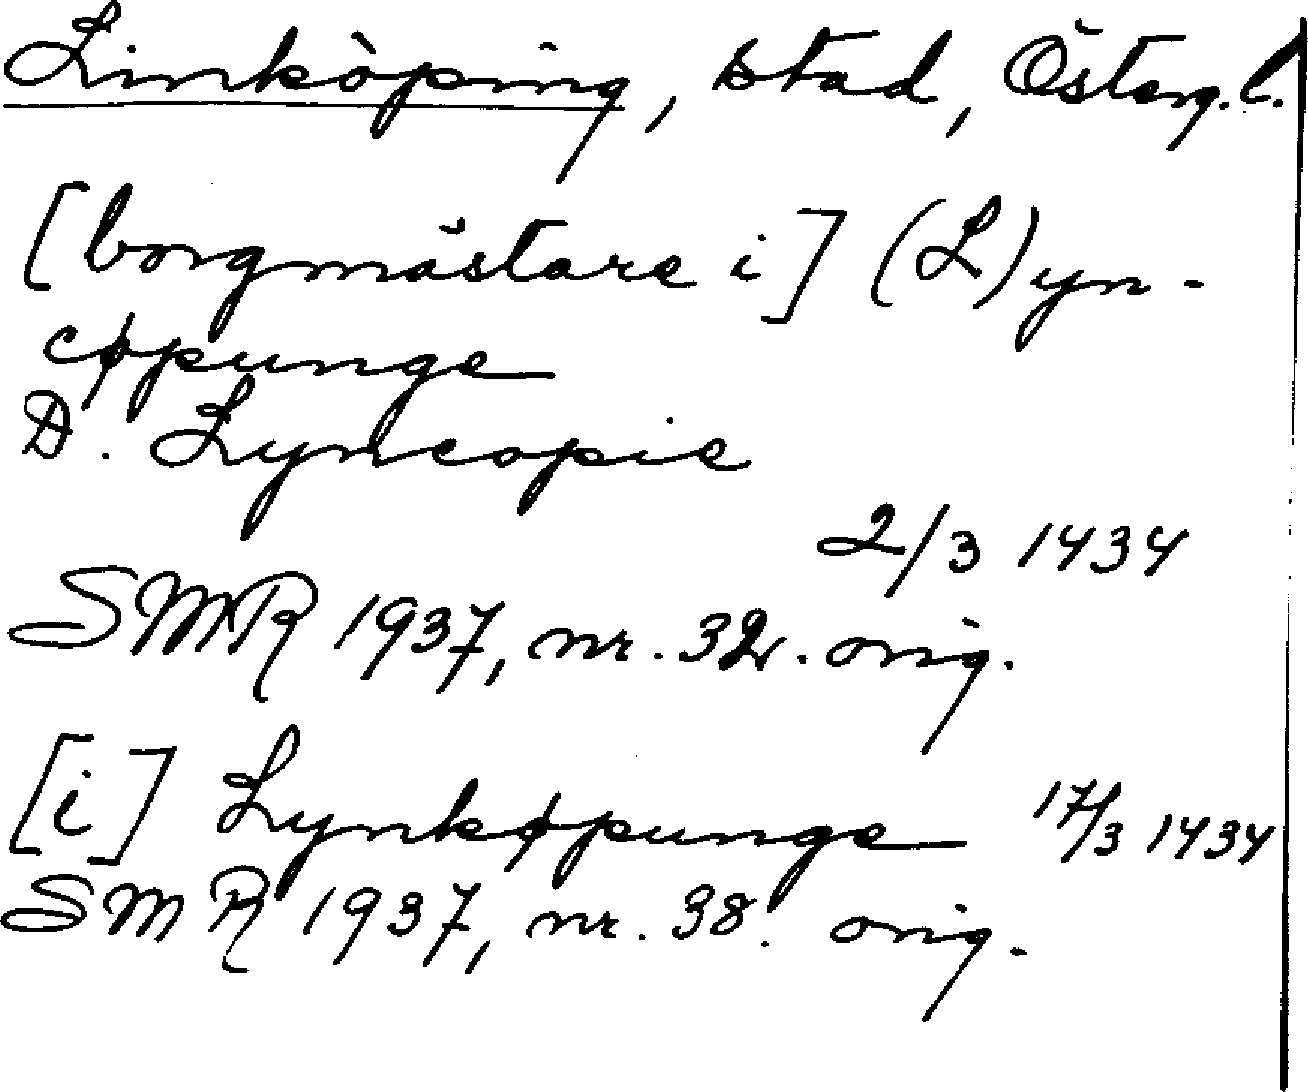 Linköping, stad, Österg. l.
[borgmästare i] (L)yn-
cøpunge
D. Lyncopie
2/3 1434
SMR 1937, nr. 32. orig.
[i] Lynkøpunge 17/3 1434
SMR 1937, nr. 38. orig.